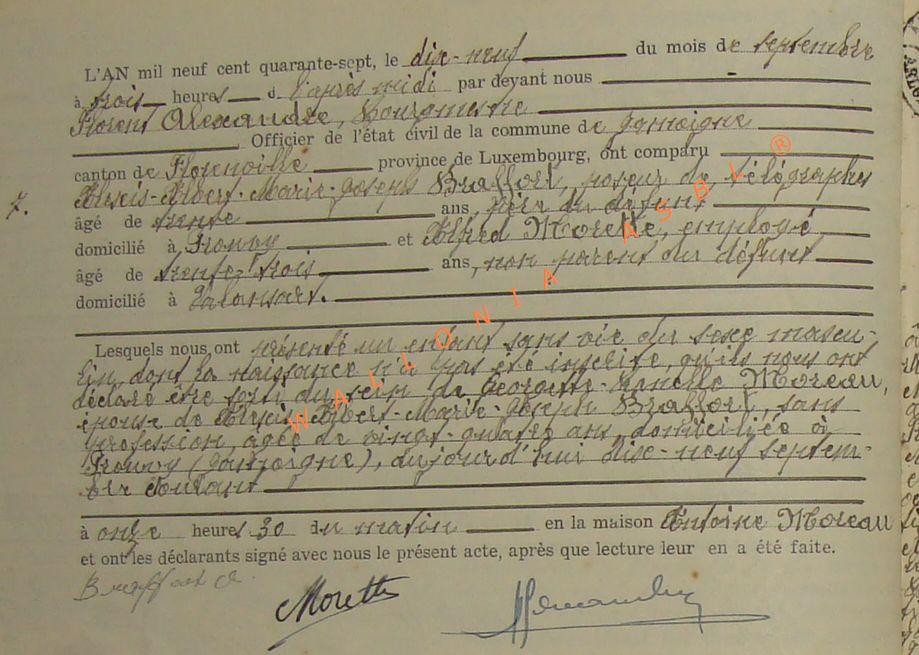 L'AN mil neuf cent quarante-sept, le dix-neuf du mois de septembre
à trois heures d l'après midi par devant nous
Florent Alexandre, bourgmestre
, Officier de l'état civil de la commune de Jamoigne
canton de Florenville province de Luxembourg, ont comparu
7. Alexis-Albert-Marie-Joseph Braffort, poseur de télégraphes
âgé de trente ans, père du défunt
domicilié à Prouvy et Alfred Morette, employé
âgé de trente trois ans, non parent du défunt
domicilié à Valansart.
Lesquels nous ont présenté un enfant sans vie du sexe mascu-
lin, dont la naissance n'a pas été inscrite, qu'ils nous ont
déclaré être sorti du sein de Georgette- Moreau,
épouse de Alexis-Albert-Marie-Joseph Braffort, sans
profession, âgée de vingt-quatre ans, domiciliée à
Prouvy (Jamoigne), aujourd'hui dix-neuf septem-
bre courant
à onze heures 30 du matin en la maison Antoine Moreau
et ont les déclarants signé avec nous le présent acte, après que lecture leur en a été faite.
Braffort A.
Morette
WALLONIA ASBL ®